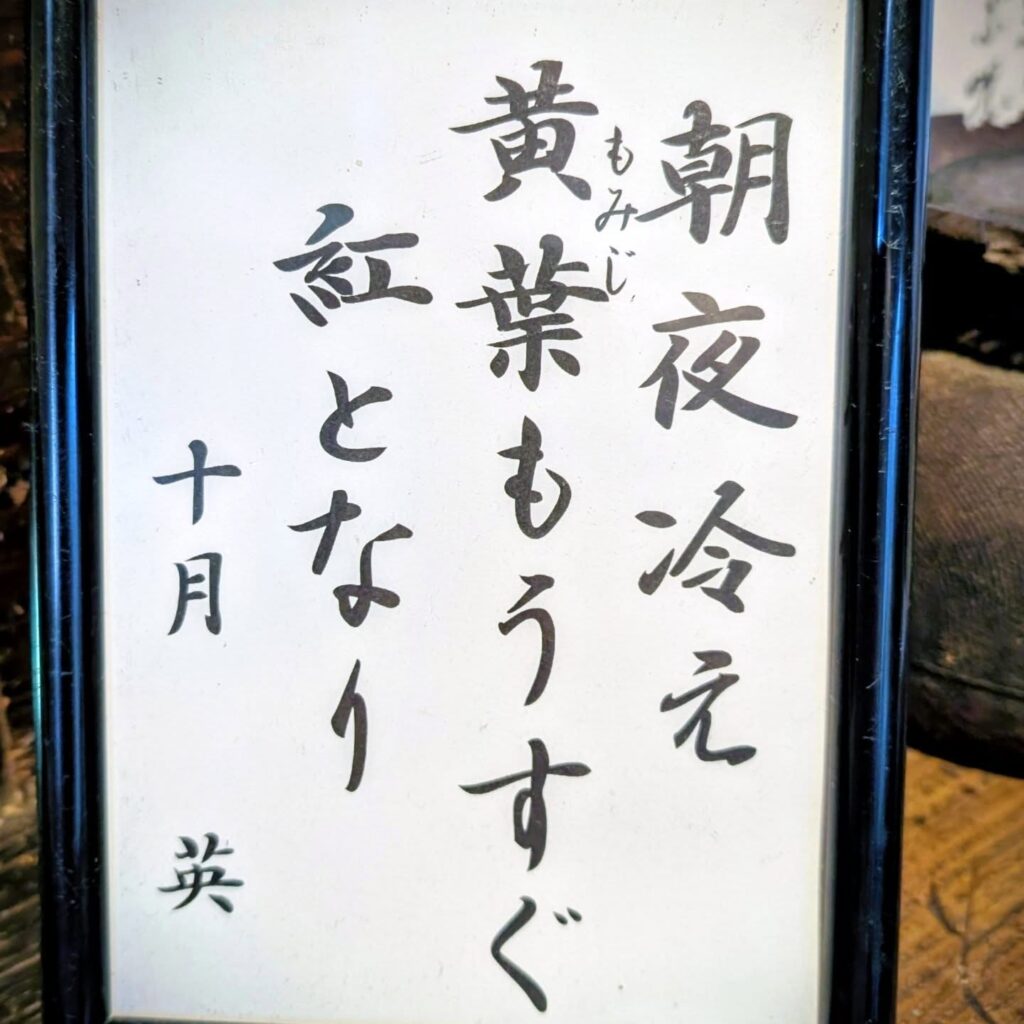 朝夜冷え
もみじ
黄葉もうすぐ
紅となり
十月 英